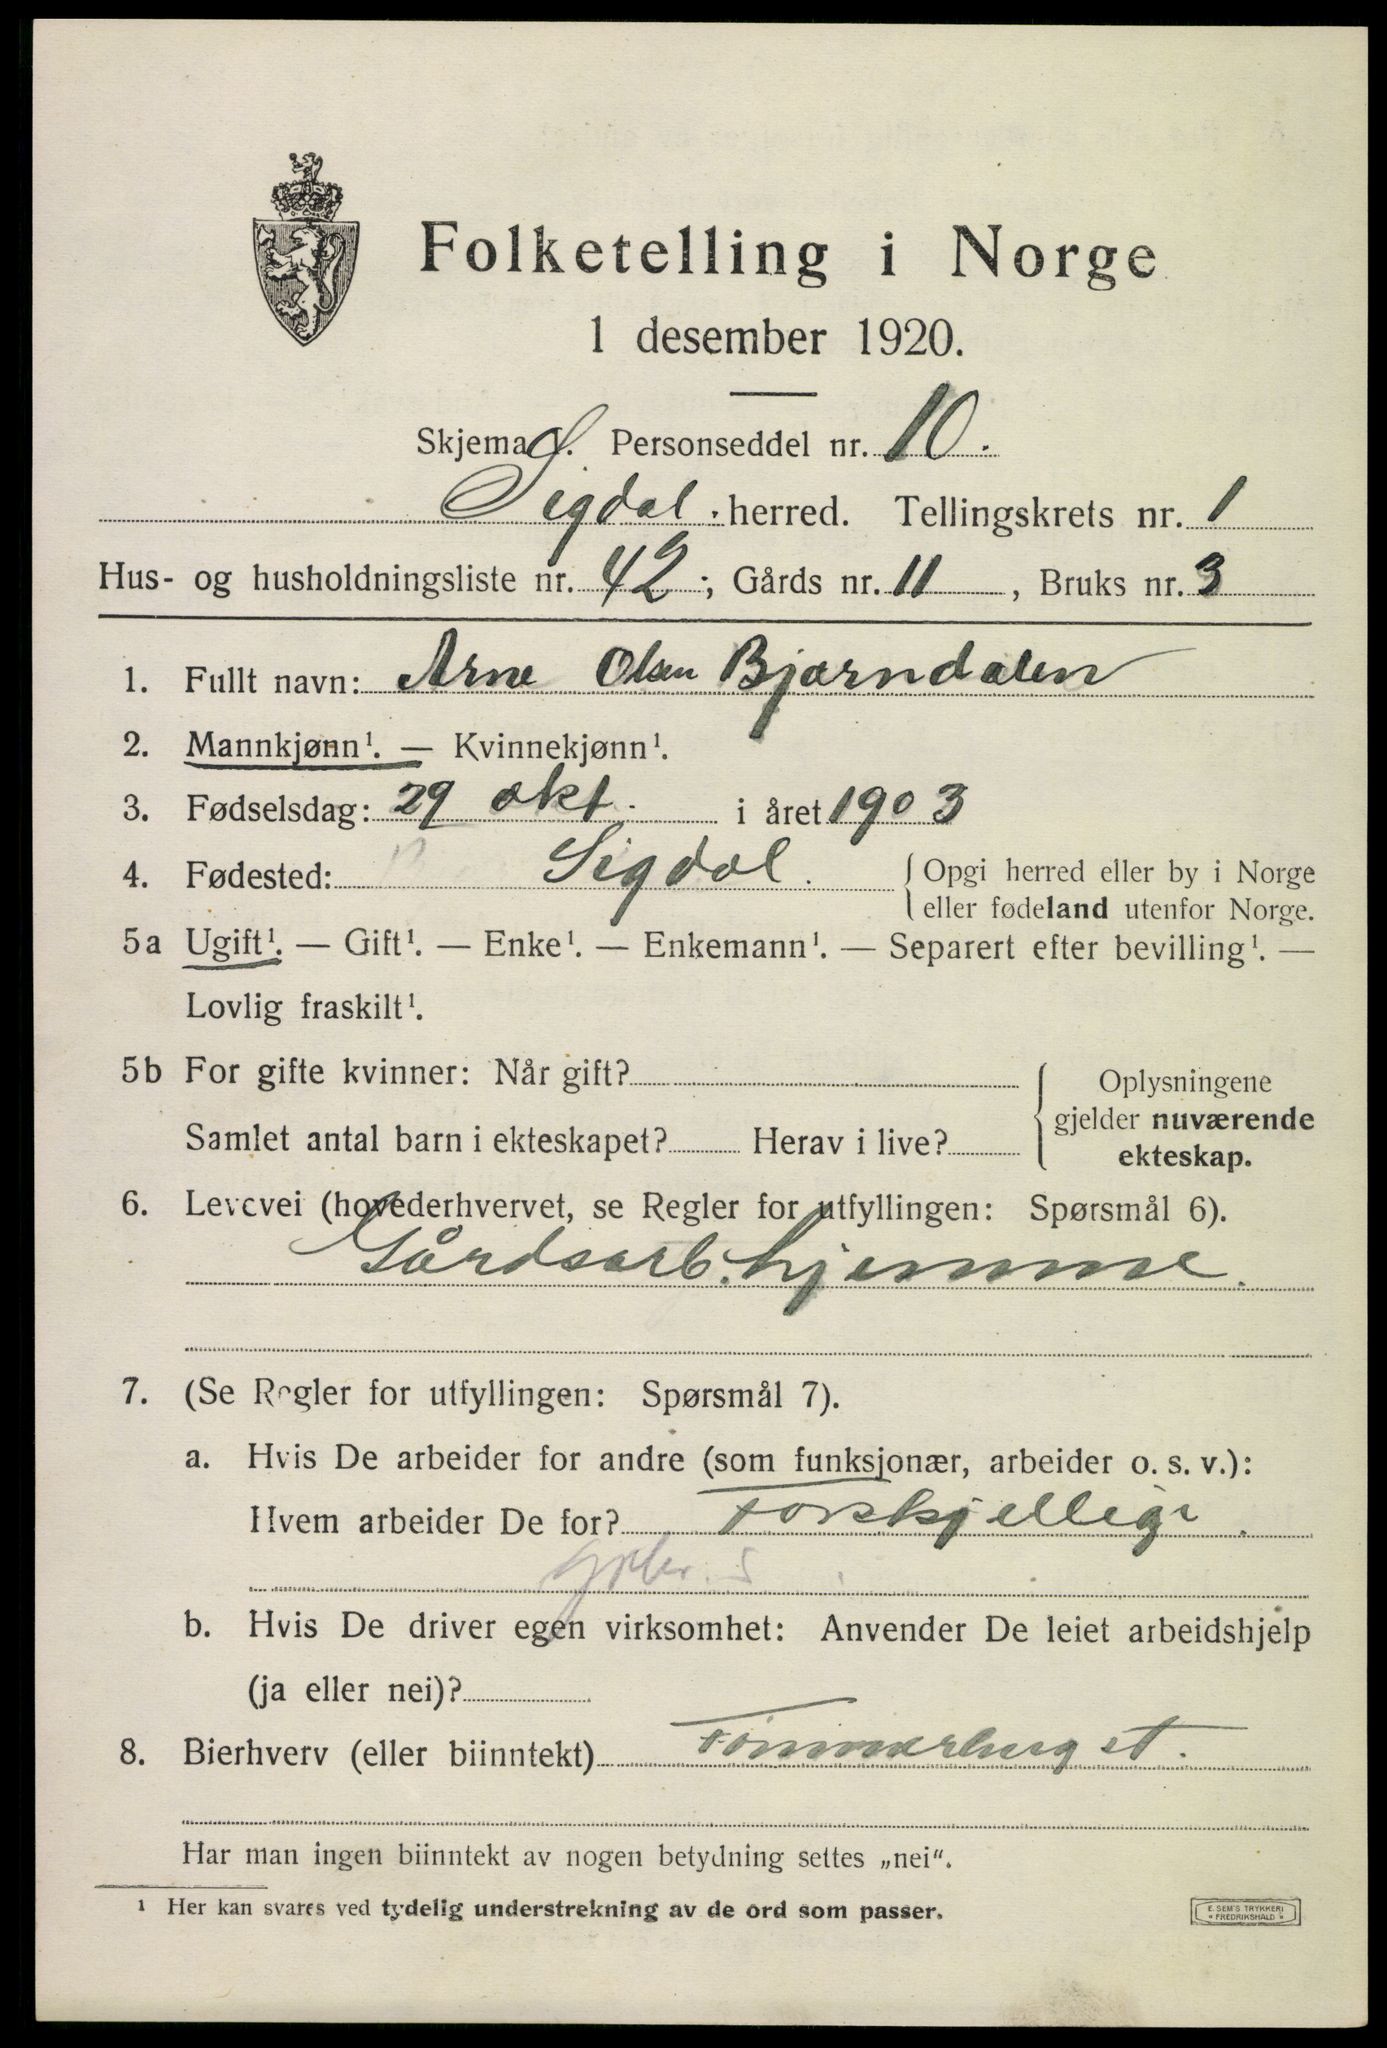 Folketelling i Norge
1 desember 1920.
Skjema Personseddel nr. 10.
Sigdal herred. Tellingskrets nr. 1
Hus- og husholdningsliste nr. 42; Gårds nr. 11, Bruks nr. 3
1. Fullt navn: Arne Olsen Bjørndalen
2. Mannkjønn¹. — Kvinnekjønn¹.
3. Fødselsdag: 29 okt. i året 1903
4. Fødested: Sigdal. {Opgi herred eller by i Norge
eller fødeland utenfor Norge.
5a Ugift¹. — Gift¹. — Enke¹. — Enkemann¹. — Separert efter bevilling¹. —
Lovlig fraskilt¹.
5b For gifte kvinner: Når gift?
Samlet antal barn i ekteskapet? Herav i live?
Oplysningene
gjelder nuværende
ekteskap.
6. Levevei (hovederhvervet, se Regler for utfyllingen: Spørsmål 6).
Gårdsarb. hjemme.
7. (Se Regler for utfyllingen: Spørsmål 7).
a. Hvis De arbeider for andre (som funksjonær, arbeider o. s. v.):
Hvem arbeider De for? Forskjellige.
b. Hvis De driver egen virksomhet: Anvender De leiet arbeidshjelp
(ja eller nei)?
8. Bierhverv (eller biinntekt) Tømmerhugst.
Har man ingen biinntekt av nogen betydning settes „nei“.
¹ Her kan svares ved tydelig understrekning av de ord som passer.
E. SEM'S TRYKKERI
FREDRIKSHALD